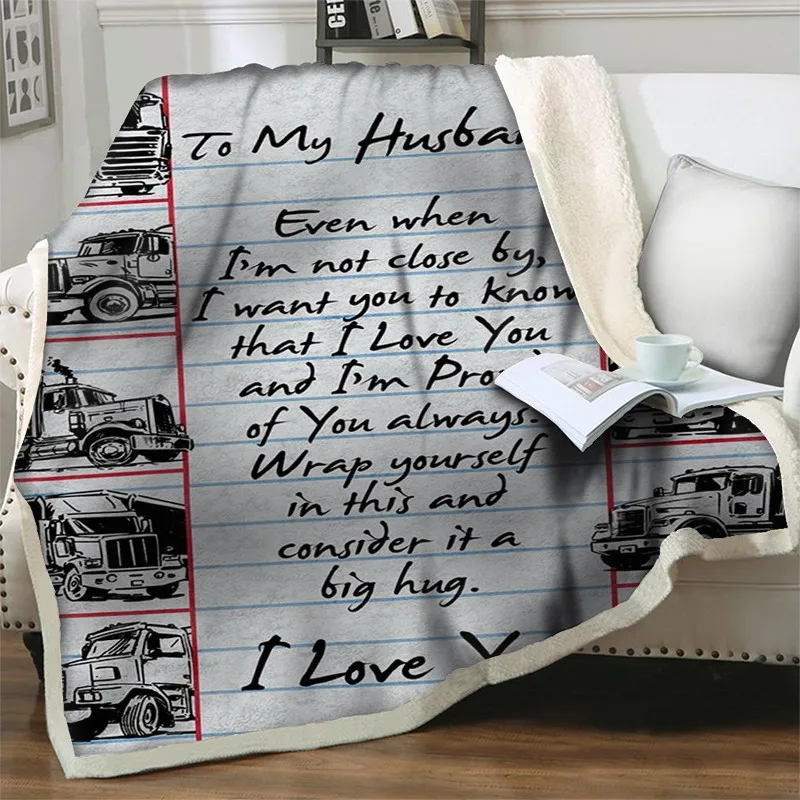 To My Husba
Even when
I'm not close by,
I want you to know
that I Love You
and I'm Pro
of You always.
Wrap yourself
in this and
consider it a
big hug.
I Love Y